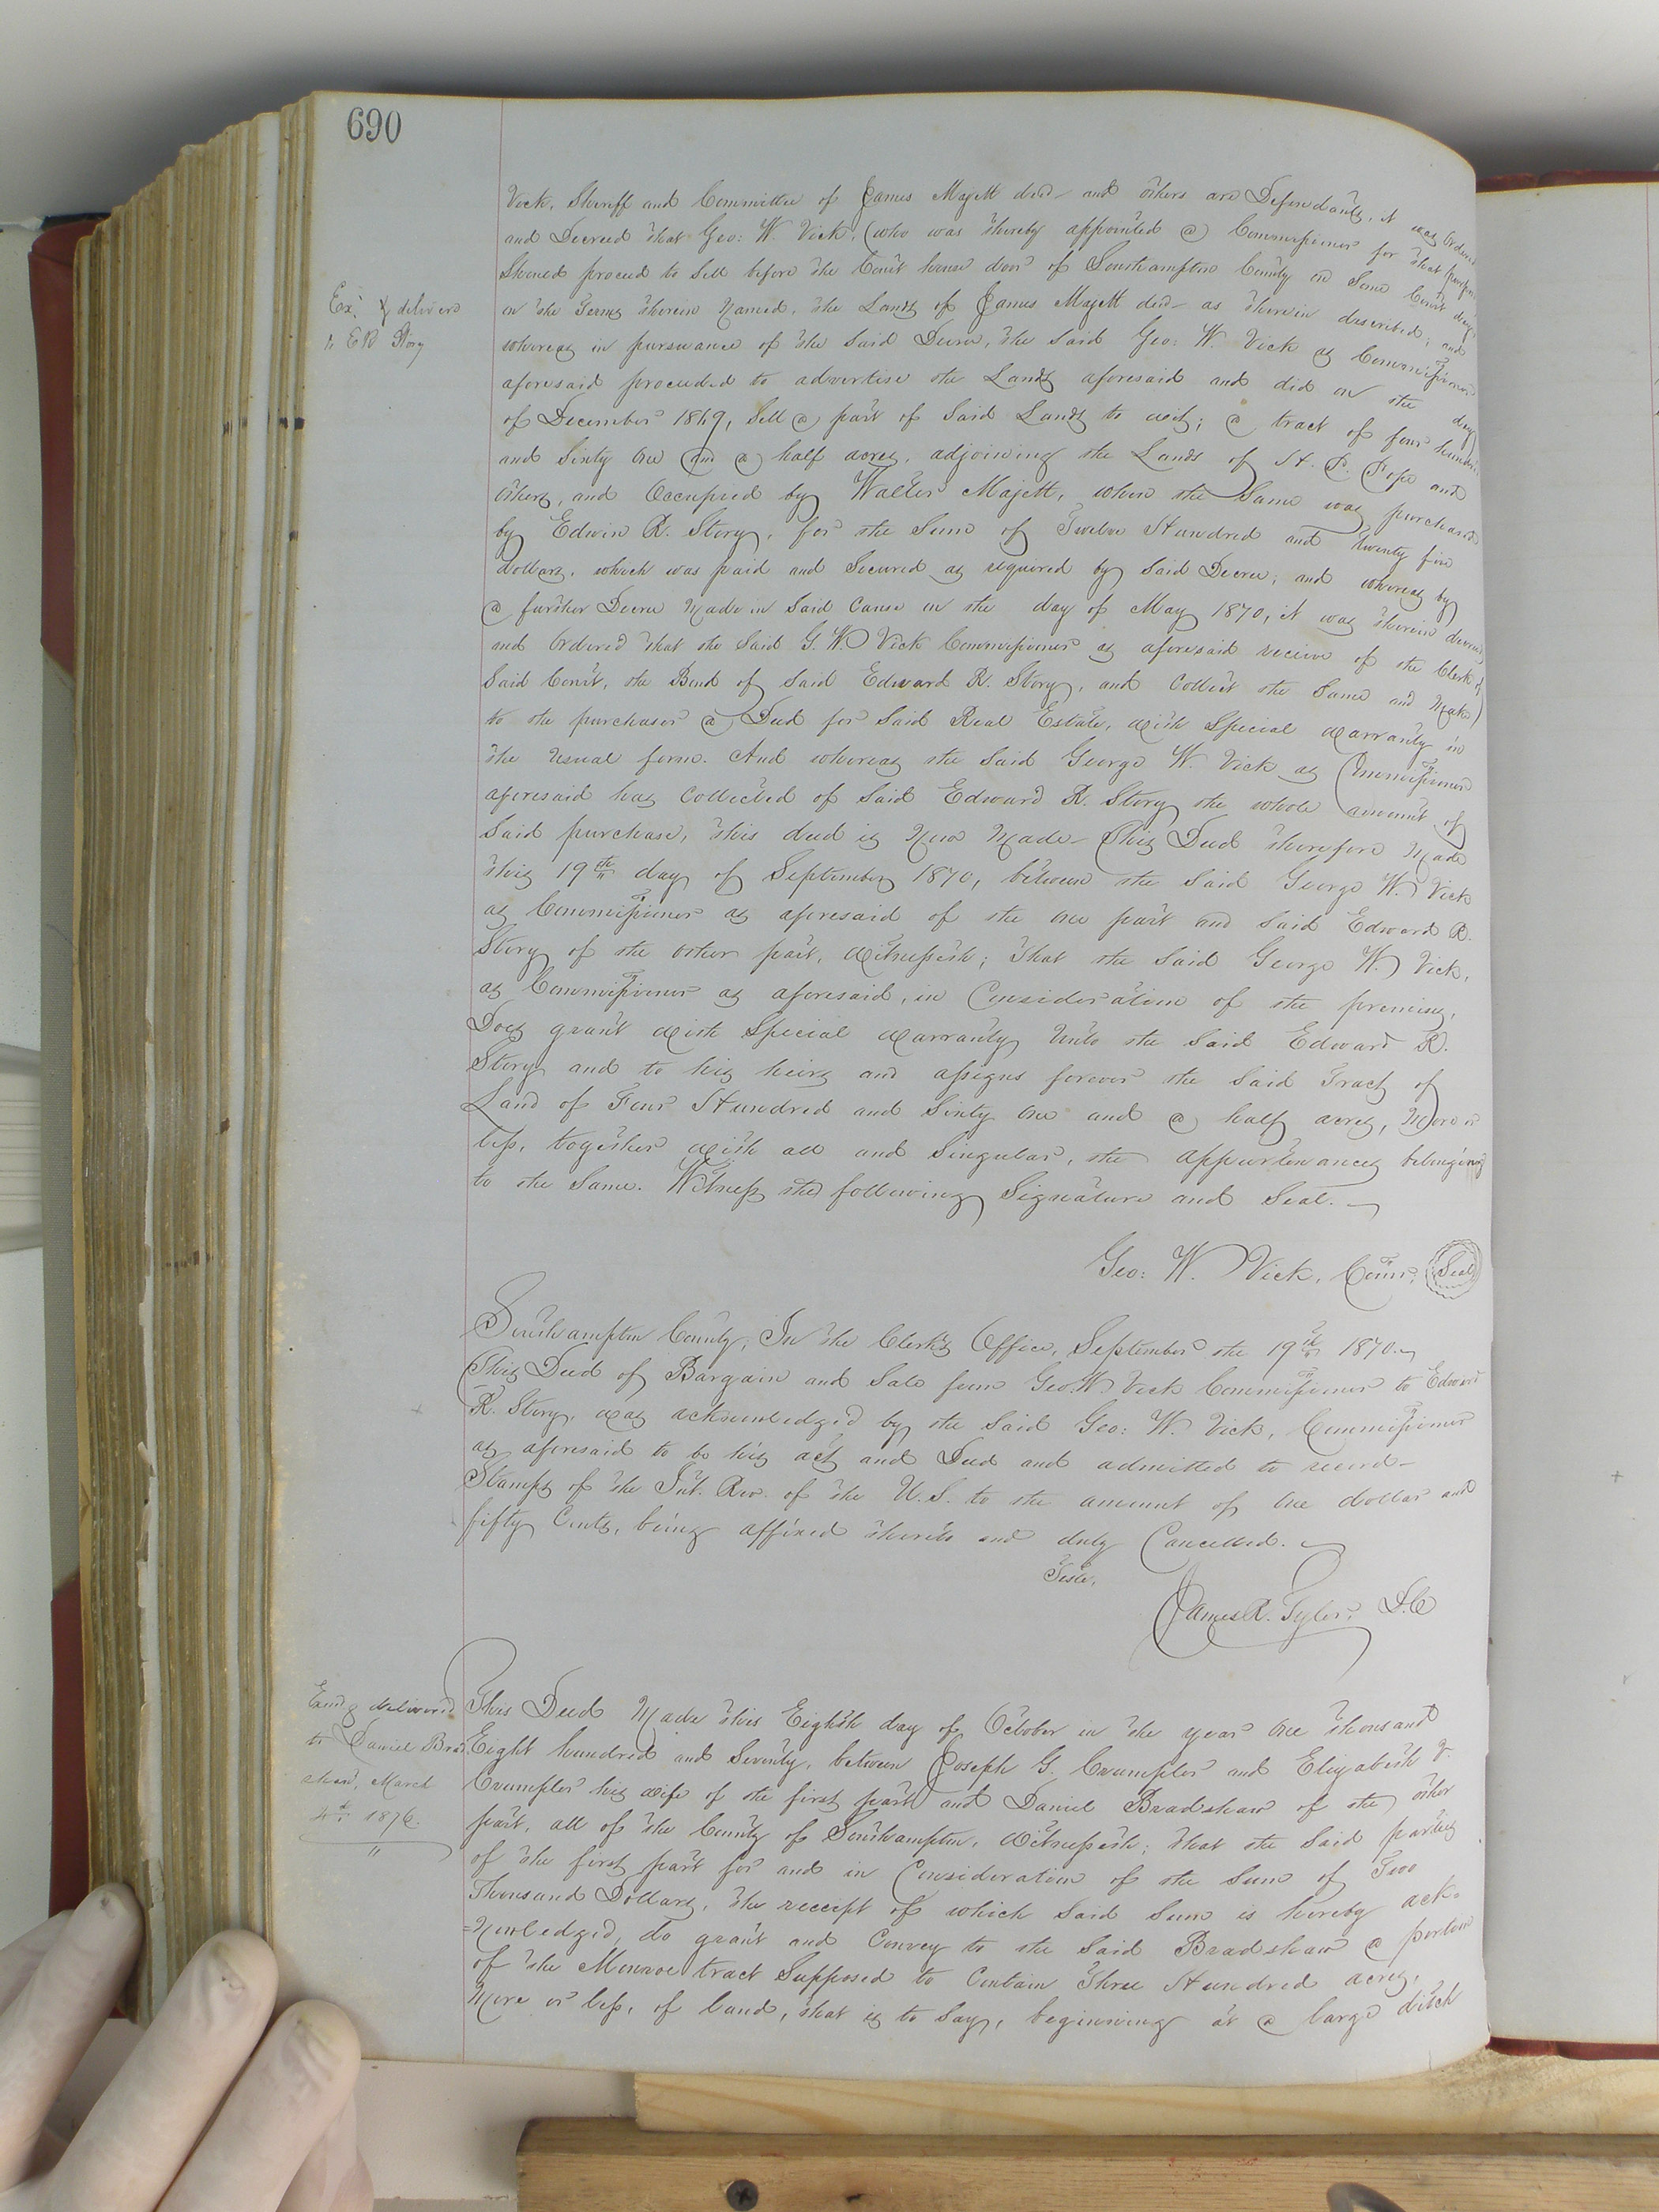 690
Vick, Sheriff and Committee of James Majett decd and others are Defendants, it was Ordered
and Decreed that Geo: W. Vick, (who was thereby appointed a Commissioner for that purpose
Should proceed to Sell before the Court house door of Southampton County on Some Court day
on the Terms therein Named, the Lands of James Majett decd as therein described; and
Ex: & delivered
to E R Story
whereas in pursuance of the Said Decree, the Said Geo: W. Vick as Commissioner
aforesaid proceeded to advertise the Lands aforesaid and did on the day
of December 1869, Sell a part of Said Lands to wit; a tract of four hundred
and Sixty One and a half acres, adjoining the Lands of H. P. Pope and
Others, and Occupied by Walter Majett, when the Same was purchased
by Edwin R. Story, for the Sum of Twelve Hundred and twenty five
dollars, which was paid and Secured as required by Said Decree; and whereas by
a further Decree Made in Said Cause on the day of May 1870, it was therein decreed
and Ordered that the Said G. W. Vick Commissioner as aforesaid receive of the Clerk of
Said Court, the Bond of Said Edward R. Story, and Collect the Same and Make
to the purchaser a Deed for Said Real Estate, with Special Warranty in
the Usual form. And whereas the Said George W. Vick as Commissioner
aforesaid has Collected of Said Edward R. Story the whole amount of
Said purchase, this deed is Now Made- This Deed therefore Made
this 19th day of September 1870, between the Said George W. Vick
as Commissioner as aforesaid of the One part and Said Edward R.
Story of the other part, Witnesseth; that the Said George W. Vick,
as Commissioner as aforesaid, in Consideration of the premises,
Does grant with Special Warranty Unto the Said Edward R.
Story and to his heirs and assigns forever the Said Tract of
Land of Four Hundred and Sixty One and a half acres, More or
less, together with all and Singular, the appurtenances belonging
to the Same. Witness the following Signature and Seal.
Geo: W. Vick, Comr, Seal
Southampton County, In the Clerk's Office, September the 19th 1870.
This Deed of Bargain and Sale from Geo: W. Vick Commissioner to Edward
R. Story, was acknowledged by the Said Geo: W. Vick, Commissioner
as aforesaid to be his act and Deed and admitted to record-
Stamps of the Int. Rev. of the U.S. to the amount of One dollar and
fifty Cents, being affixed thereto and duly Cancelled.
Teste,
James R. Tyler, D.C
Exd & delivered
to Daniel Brad
shaw, March
4th 1876.
This Deed Made this Eighth day of October in the year One thousand
Eight hundred and Seventy, between Joseph G. Crumpler and Elizabeth V.
Crumpler his wife of the first part and Daniel Bradshaw of the other
part, all of the County of Southampton, Witnesseth; that the Said parties
of the first part for and in Consideration of the Sum of Two
Thousand Dollars, the receipt of which Said Sum is hereby ack-
=nowledged, do grant and Convey to the Said Bradshaw a portion
of the Monroe tract Supposed to Contain Three Hundred acres,
More or less, of land, that is to Say, beginning at a large ditch